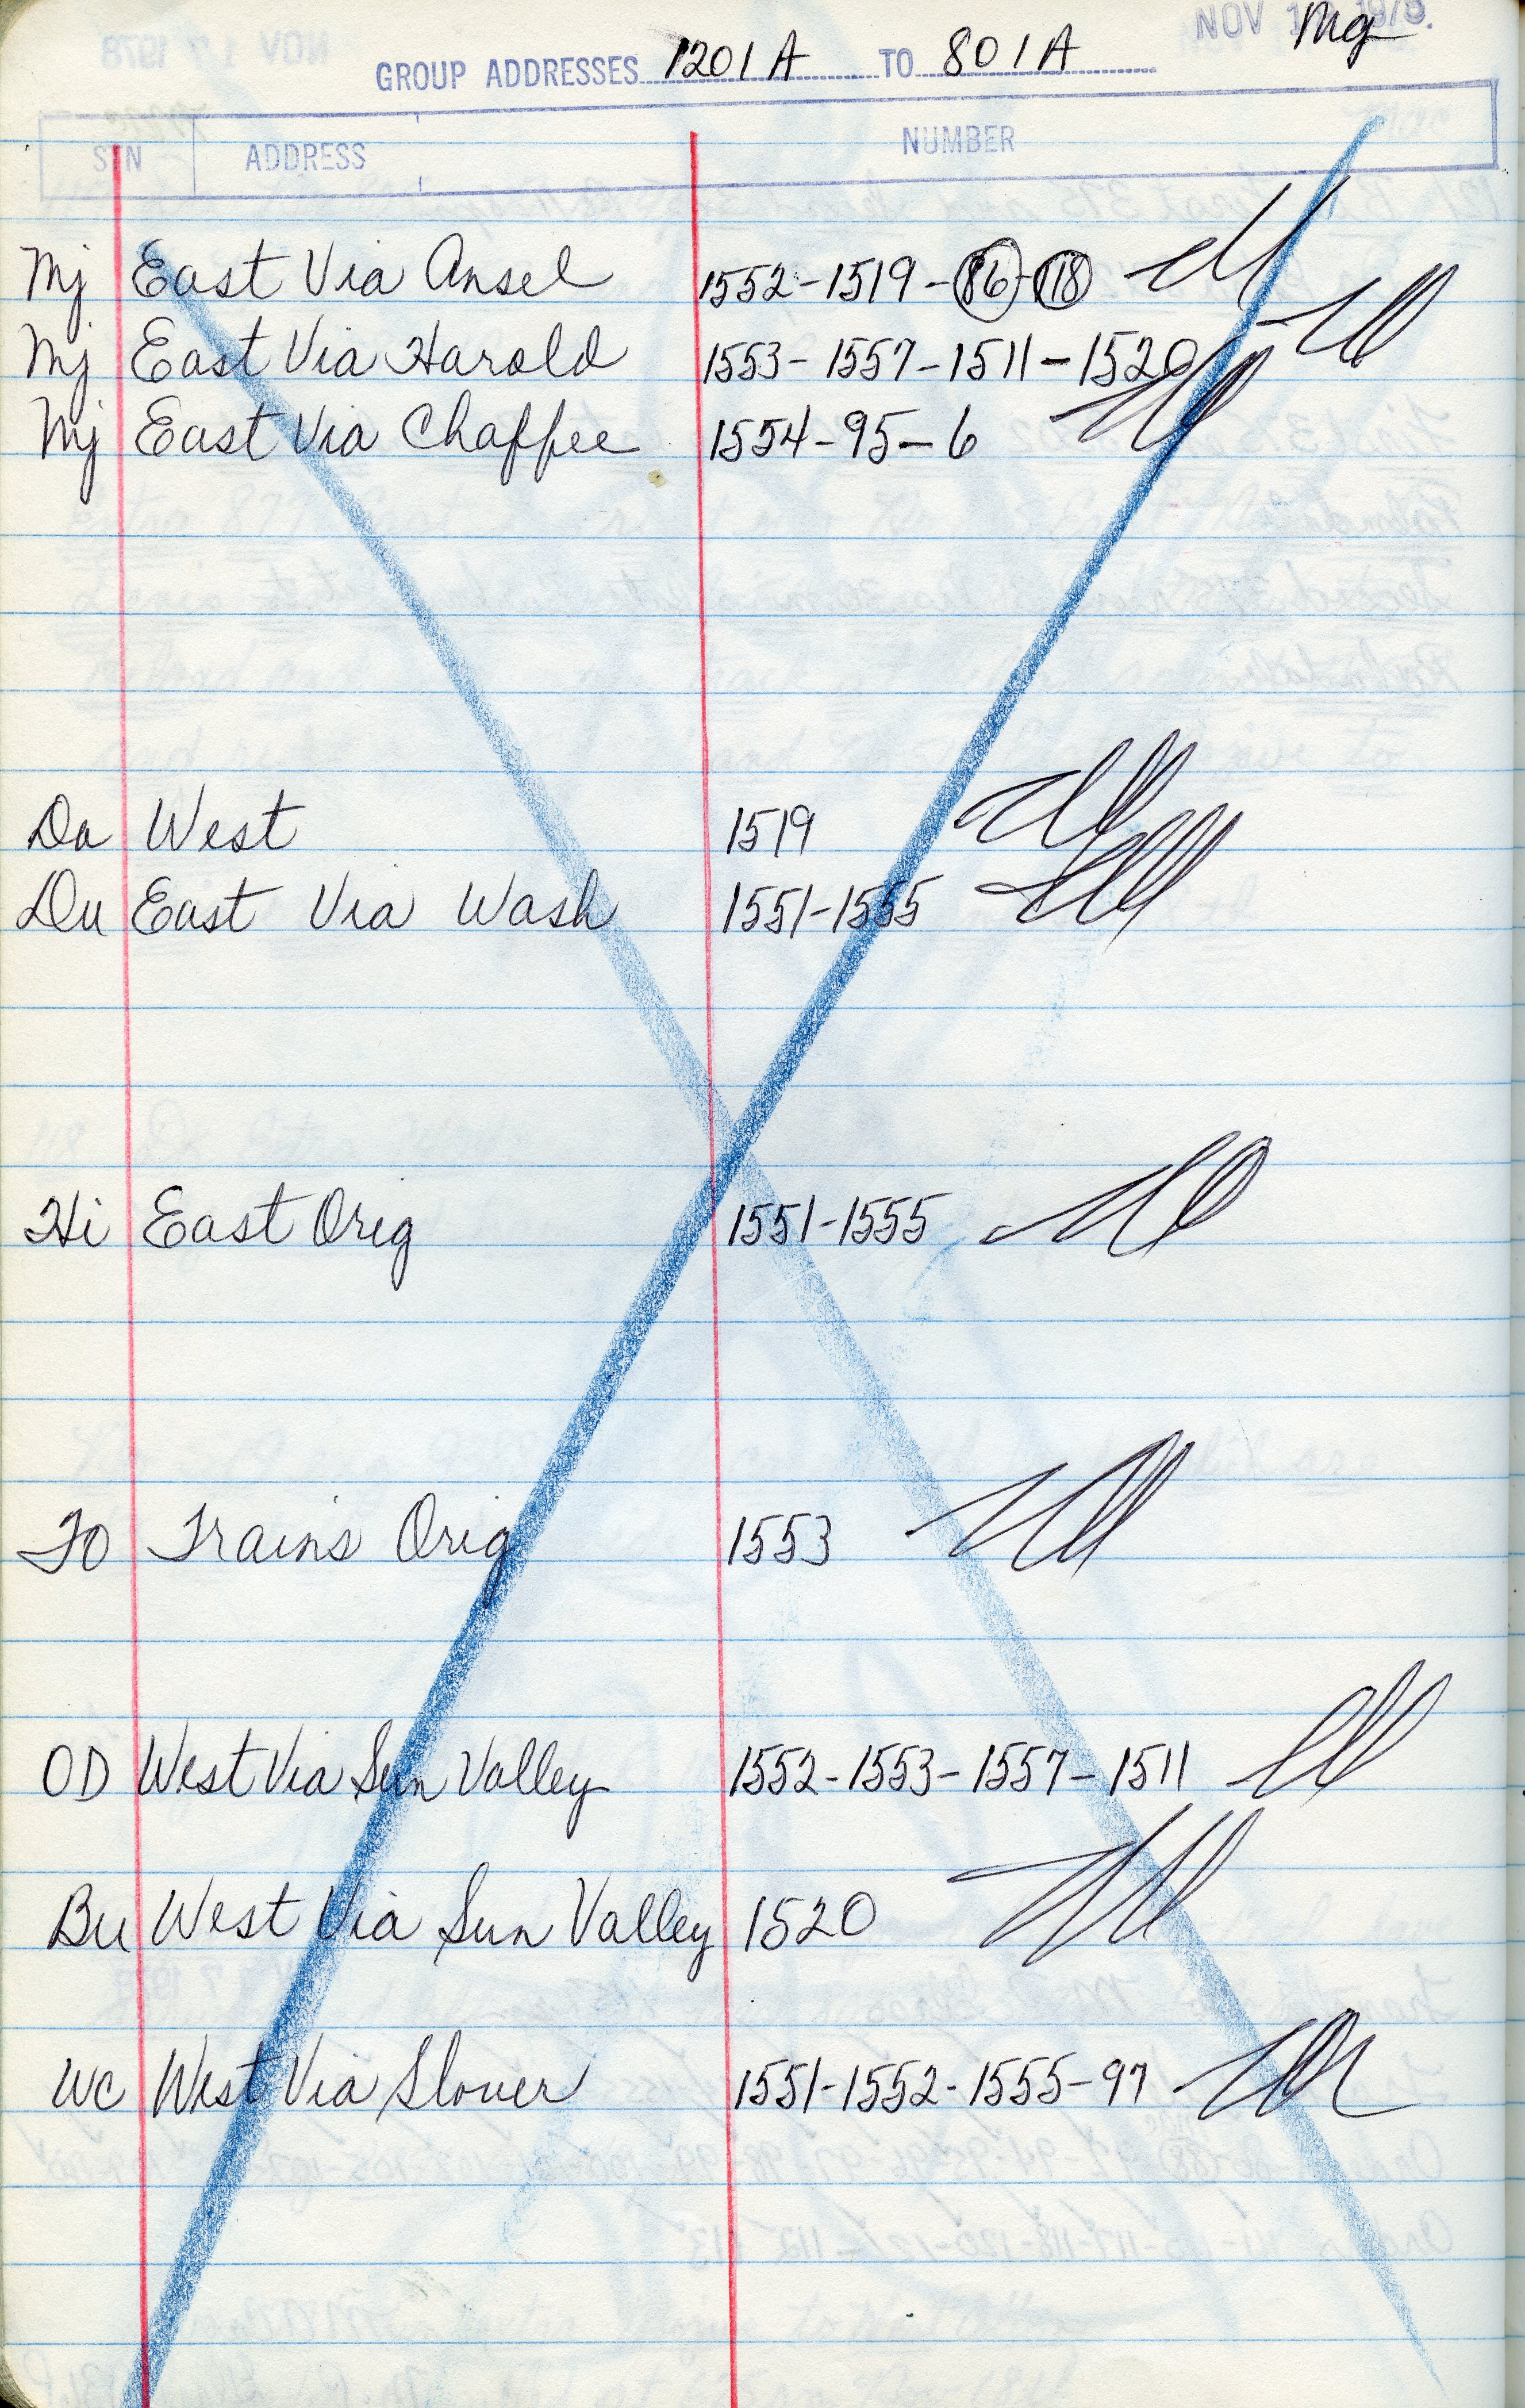 NOV 1 1978. Mg
GROUP ADDRESSES 1201A TO 801A
STN ADDRESS NUMBER
Mj East Via Ansel 1552-1519-86-118
Mj East Via Harold 1553-1557-1511-1520
Mj East Via Chaffee 1554-95-6
Da West 1519
Du East Via Wash 1551-1555
Hi East Orig 1551-1555
TO Trains Orig 1553
OD West Via Sun Valley 1552-1553-1557-1511
Bu West Via Sun Valley 1520
WC West Via Slover 1551-1552-1555-97